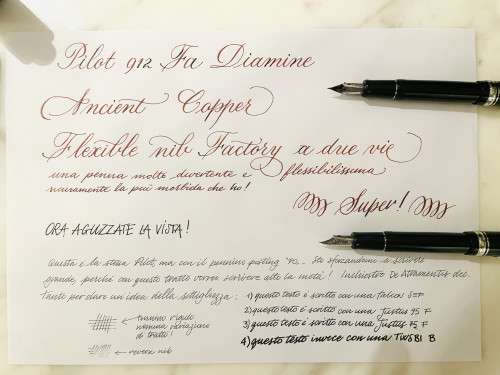 Pilot 912 Fa Diamine
Ancient Copper
Flexible nib Factory a due vie
una penna molto divertente e flessibilissima
sicuramente la più morbida che ho!
Super!
ORA AGUZZATE LA VISTA!
Questa è la stessa Pilot, ma con il pennino posting Sto sforzandomi a scrivere
grande, perchè con questo tratto vorrei scrivere alte la metà! Inchiostro De Atramentis doc.
Tanto per dare un idea della sottigliezza:
1) questo testo è scritto con una falcon SEF
2) questo testo è scritto con una Justus 95 F
3) questo testo è scritto con una Justus 95 F
4) questo testo invece con una TWSBI B
tratto
reverse nib